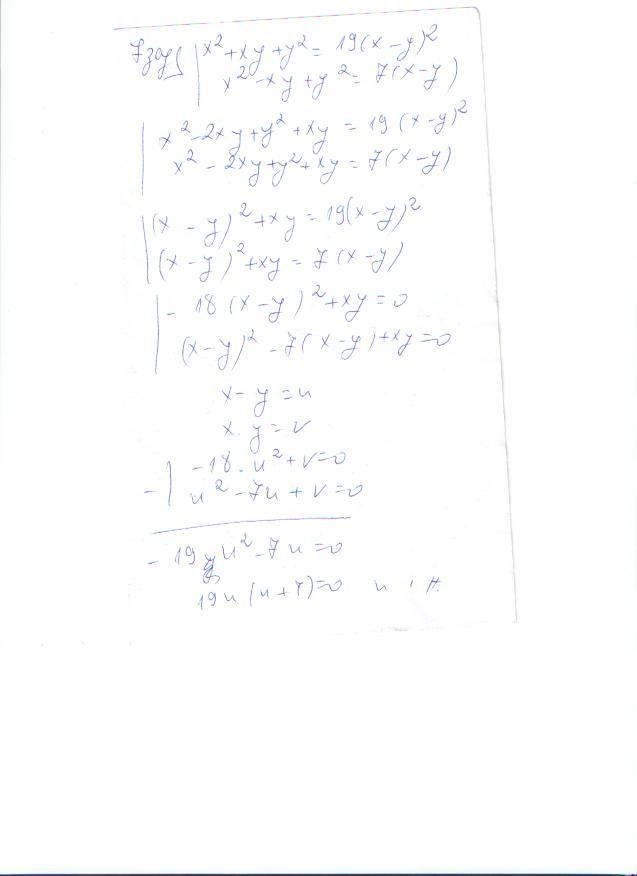 7 | x² + xy + y² = 19(x - y)²
x² - xy + y² = 7(x - y)
x² - 2xy + y² + xy = 19(x - y)²
x² - 2xy + y² + xy = 7(x - y)
(x - y)² + xy = 19(x - y)²
(x - y)² + xy = 7(x - y)
- 18(x - y)² + xy = 0
(x - y)² - 7(x - y) + xy = 0
x - y = u
x . y = v
-18. u² + v = 0
- | u² - 7u + v = 0
- 19 u² - 7u = 0
19u(u + 7) = 0 u